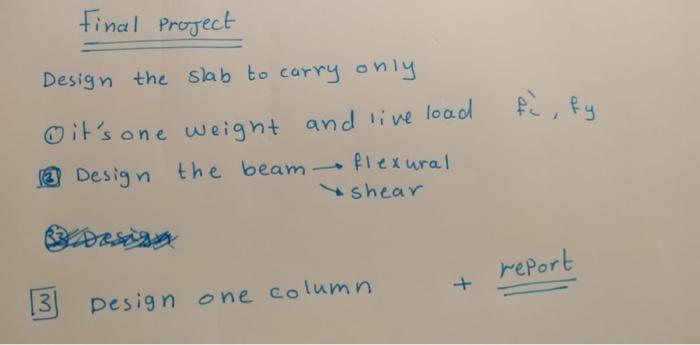 Final Project
Design the slab to carry only
① it's one weight and live load fc', fy
② Design the beam → flexural
↘ shear
[3] Design one column + report